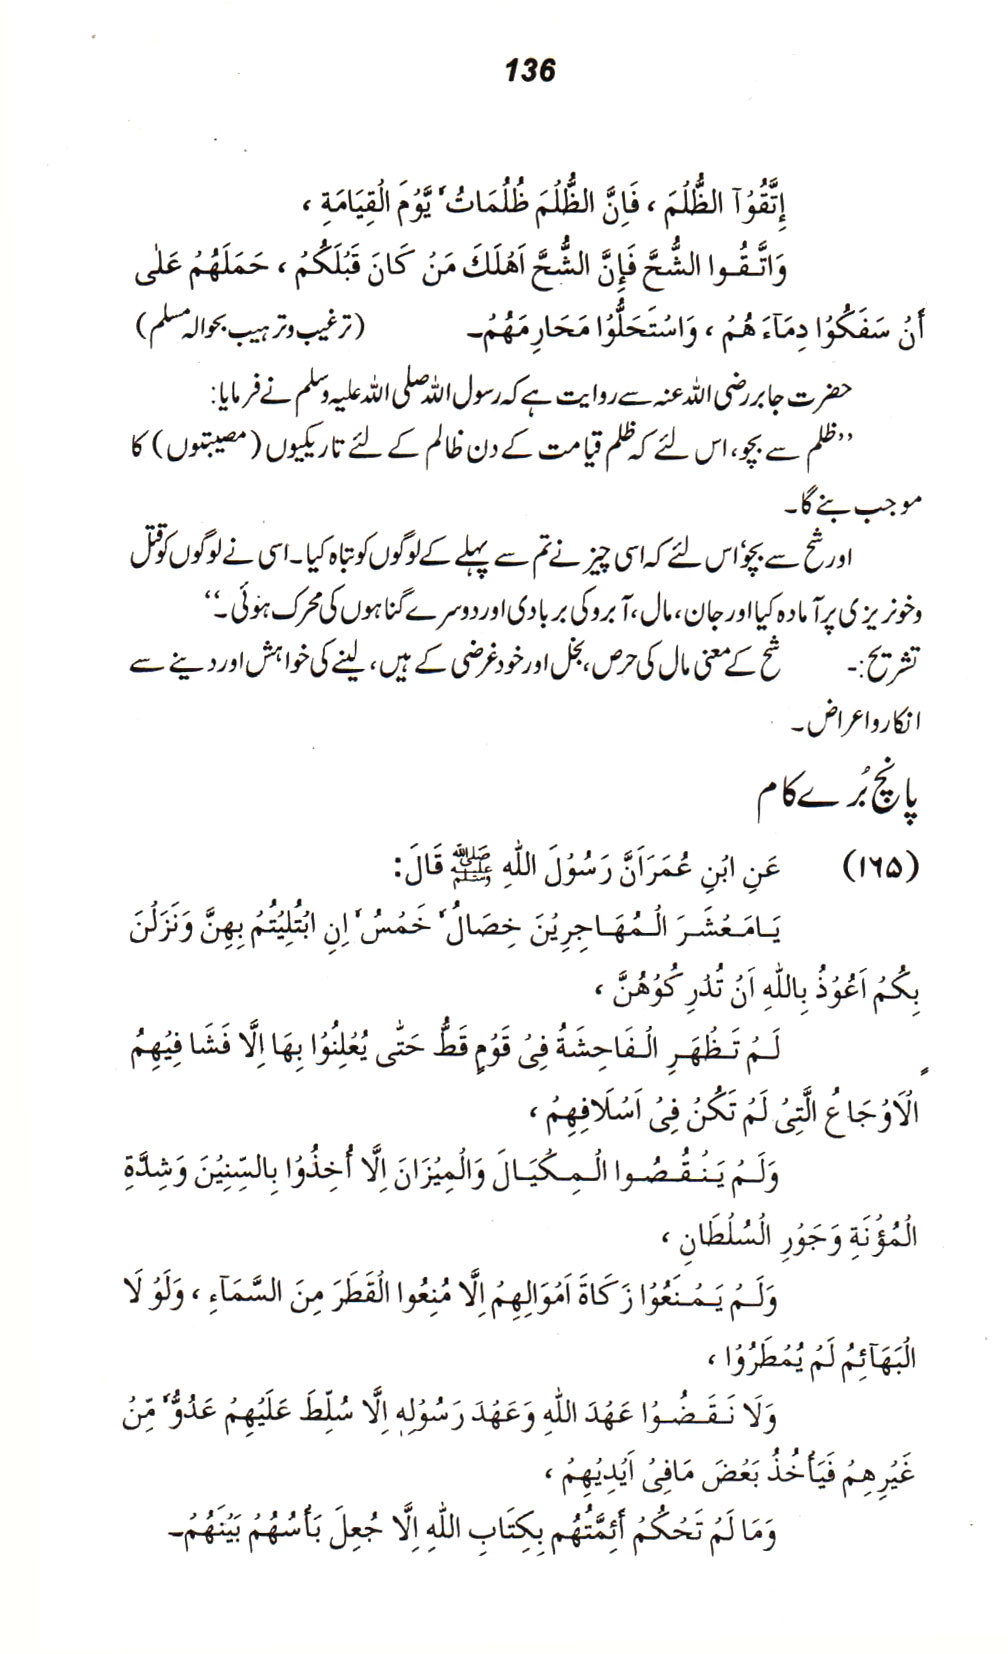 136
إِتَّقُوْآ الظُّلْمَ ، فَاِنَّ الظُّلْمَ ظُلُمَاتٌ يَّوْمَ الْقِيَامَةِ ،
وَاتَّقُوا الشُّحَّ فَإِنَّ الشُّحَّ اَهْلَكَ مَنْ كَانَ قَبْلَكُمْ ، حَمَلَهُمْ عَلٰى
أَنْ سَفَكُوْا دِمَآءَ هُمْ ، وَاسْتَحَلُّوْا مَحَارِمَهُمْ۔ (ترغیب وترہیب بحوالہ مسلم)
حضرت جابر رضی اللہ عنہ سے روایت ہے کہ رسول اللہ صلی اللہ علیہ وسلم نے فرمایا:
’’ظلم سے بچو، اس لئے کہ ظلم قیامت کے دن ظالم کے لئے تاریکیوں (مصیبتوں) کا
موجب بنے گا۔
اور شح سے بچو‘ اس لئے کہ اسی چیز نے تم سے پہلے کے لوگوں کو تباہ کیا۔ اسی نے لوگوں کو قتل
وخونریزی پر آمادہ کیا اور جان، مال، آبرو کی بربادی اور دوسرے گناہوں کی محرک ہوئی۔‘‘
تشریح:۔ شح کے معنی مال کی حرص، بخل اور خودغرضی کے ہیں، لینے کی خواہش اور دینے سے
انکار واعراض۔
پانچ بُرے کام
(۱۶۵) عَنِ ابْنِ عُمَرَ اَنَّ رَسُوْلَ اللّٰهِ ﷺ قَالَ:
يَامَعْشَرَ الْمُهَاجِرِيْنَ خِصَالٌ خَمْسٌ اِنِ ابْتُلِيْتُمْ بِهِنَّ وَنَزَلْنَ
بِكُمْ اَعُوْذُ بِاللّٰهِ اَنْ تُدْرِكُوْهُنَّ ،
لَمْ تَظْهَرِ الْفَاحِشَةُ فِىْ قَوْمٍ قَطُّ حَتّٰى يُعْلِنُوْا بِهَا اِلَّا فَشَا فِيْهِمُ
الْاَوْجَاعُ الَّتِىْ لَمْ تَكُنْ فِىْ اَسْلَافِهِمْ ،
وَلَمْ يَنْقُصُوا الْمِكْيَالَ وَالْمِيْزَانَ اِلَّا أُخِذُوْا بِالسِّنِيْنَ وَشِدَّةِ
الْمُؤْنَةِ وَجَوْرِ السُّلْطَانِ ،
وَلَمْ يَمْنَعُوْا زَكَاةَ اَمْوَالِهِمْ اِلَّا مُنِعُوا الْقَطَرَ مِنَ السَّمَآءِ ، وَلَوْ لَا
الْبَهَآئِمُ لَمْ يُمْطَرُوْا ،
وَلَا نَقَضُوْا عَهْدَ اللّٰهِ وَعَهْدَ رَسُوْلِهٖ اِلَّا سُلِّطَ عَلَيْهِمْ عَدُوٌّ مِّنْ
غَيْرِهِمْ فَيَأْخُذُ بَعْضَ مَافِىْ اَيْدِيْهِمْ ،
وَمَا لَمْ تَحْكُمْ أَئِمَّتُهُم بِكِتَابِ اللّٰهِ اِلَّا جُعِلَ بَأْسُهُمْ بَيْنَهُمْ۔